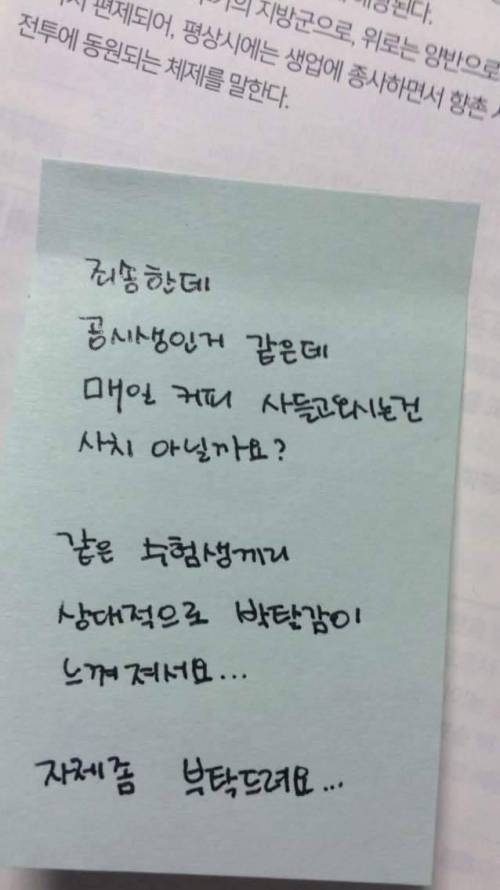 편제되어, 평상시에는 생업에 종사하면서 향촌
지방군으로, 위로는 양반으로
전투에 동원되는 체제를 말한다.
죄송한데
공시생인거 같은데
매일 커피 사들고오시는건
사치 아닐까요?
같은 수험생끼리
상대적으로 박탈감이
느껴져서요...
자제좀 부탁드려요...